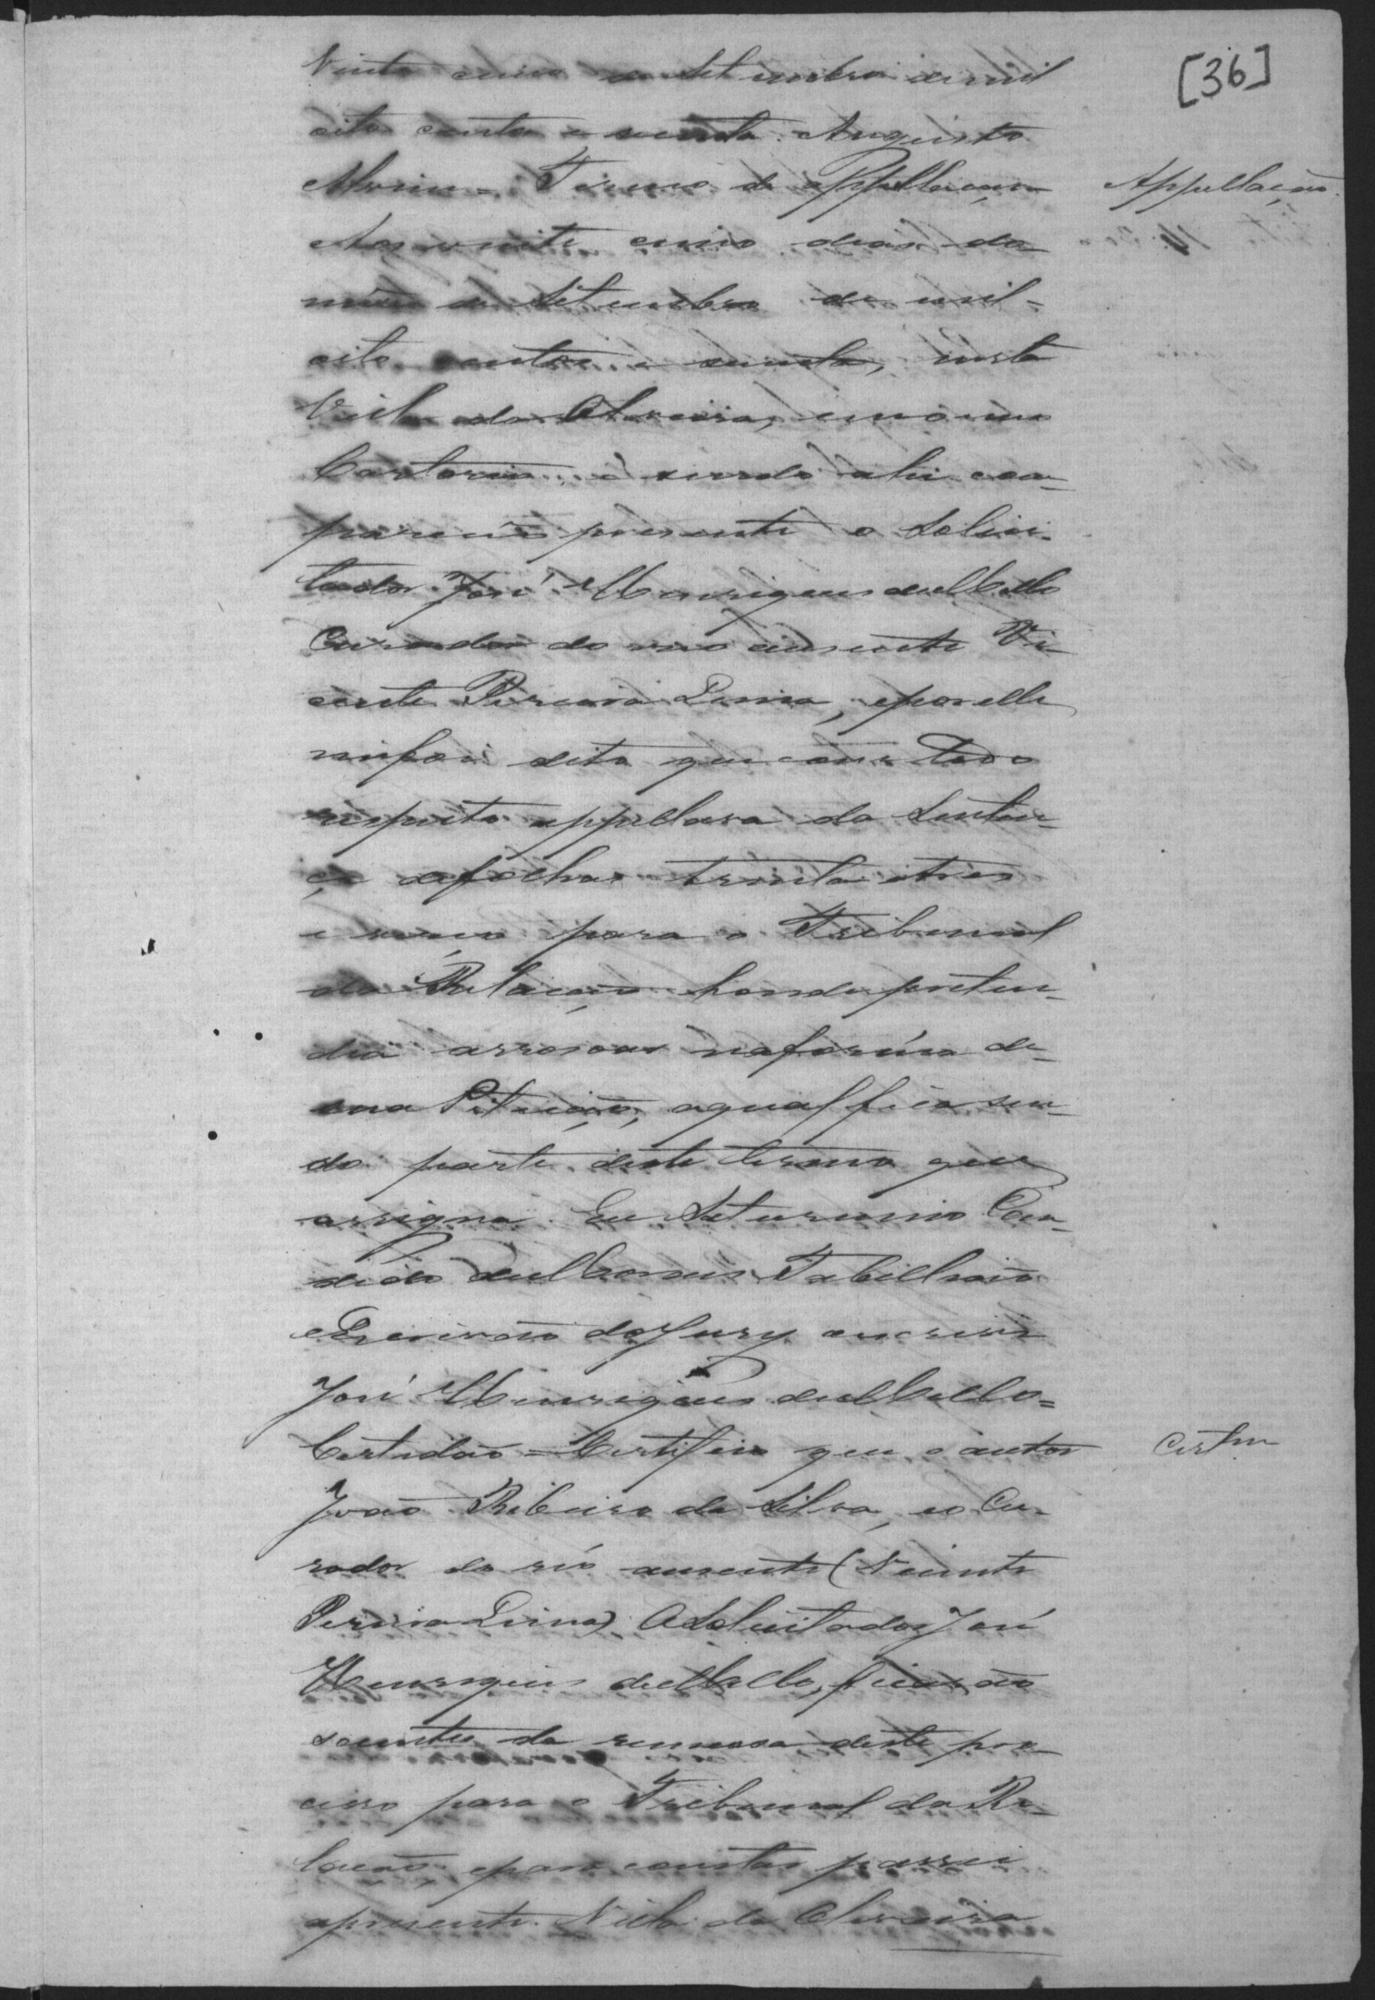 [36]
Vinte cinco de Setembro de mil
oito centos e secenta. Augusto
Termo de Appellaçao
Appellação
Aos vinte cinco dias do
mês de Setembro de mil
oito centos e secenta, nesta
Villa da Oliveira, em o meu
Cartorio, e sendo ahi com-
pareceo presente o Solici-
tador José Henriques de Mello
Curador do reo ausente Vi-
cente Pereira Lima, e por elle
me foi dito que com o devido
respeito appellava da Senten-
ça de folhas trinta e tres
e verso para o Tribunal
da Relação honde preten-
dia arrosoar na forma de
sua Petição, a qual fica sen-
do parte deste termo que
assigna. Eu Saturnino Can-
dido de Moraes Tabellião
e Escrivão do Jury o escrevi
José Henriques de Mello =
Certidão = Certifico que o autor
Certam
João Ribeiro da Silva, e o Cu-
rador do réo ausente (Vicente
Pereira Lima) o Solicitador José
Henriques de Mello, ficarão
scientes da remessa deste pro-
cesso para o Tribunal da Re-
lação, e para constar passei
a presente. Villa da Oliveira